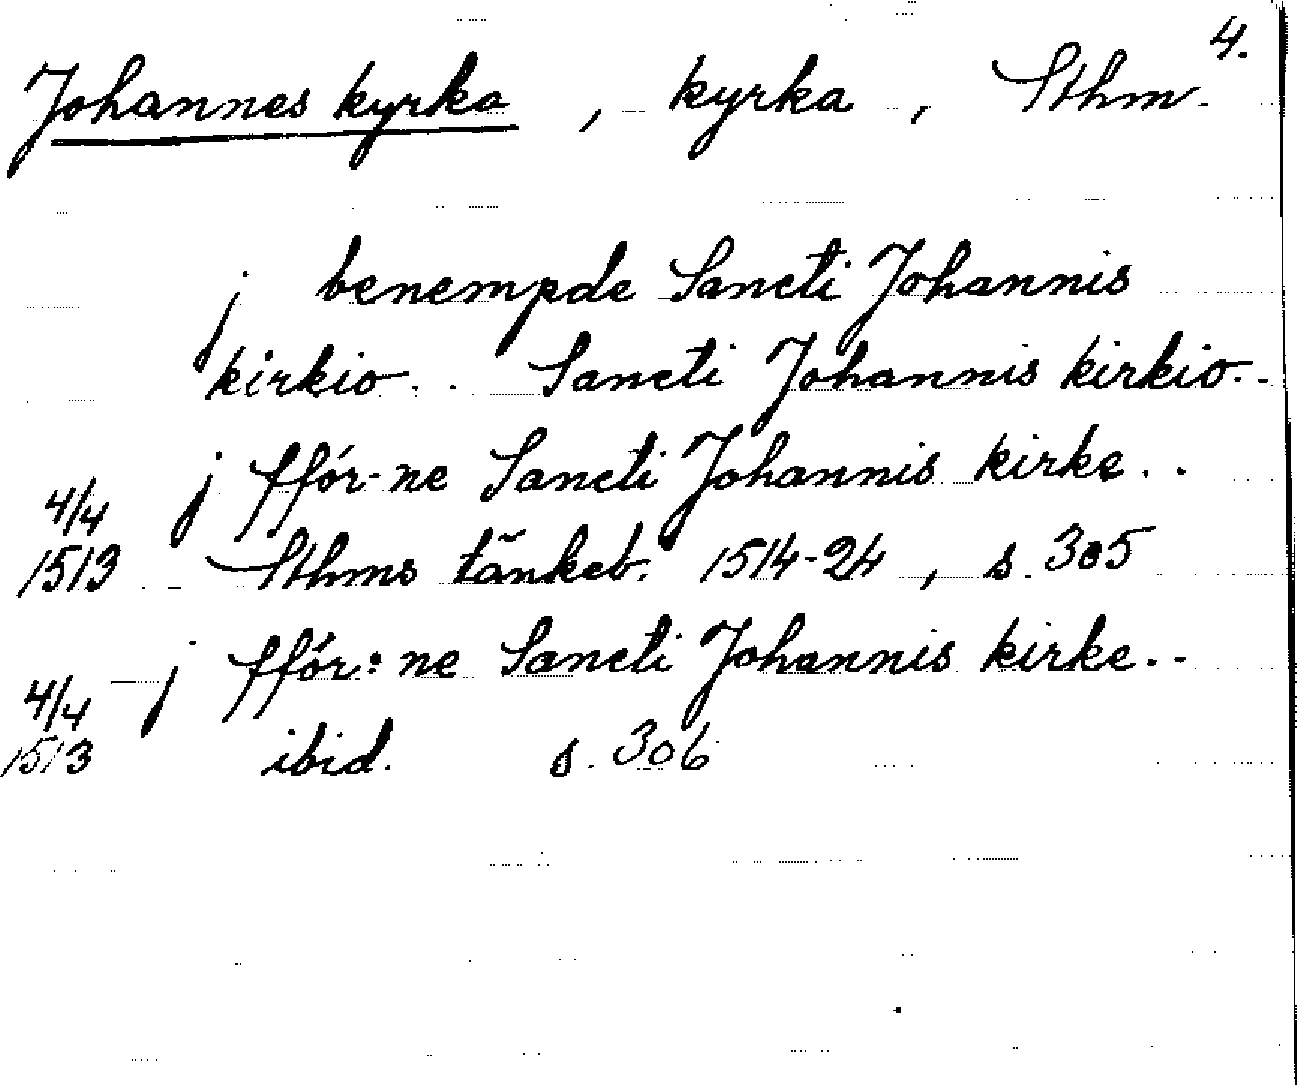 4.
Johannes kyrka , kyrka , Sthm.
j benempde Sancti Johannis
kirkio.. Sancti Johannis kirkio..
j ffór-ne Sancti Johannis kirke..
4/4
1513 Sthms tänkeb. 1514-24 , s. 305
j ffór:ne Sancti Johannis kirke..
4/4
1513 ibid. s. 306